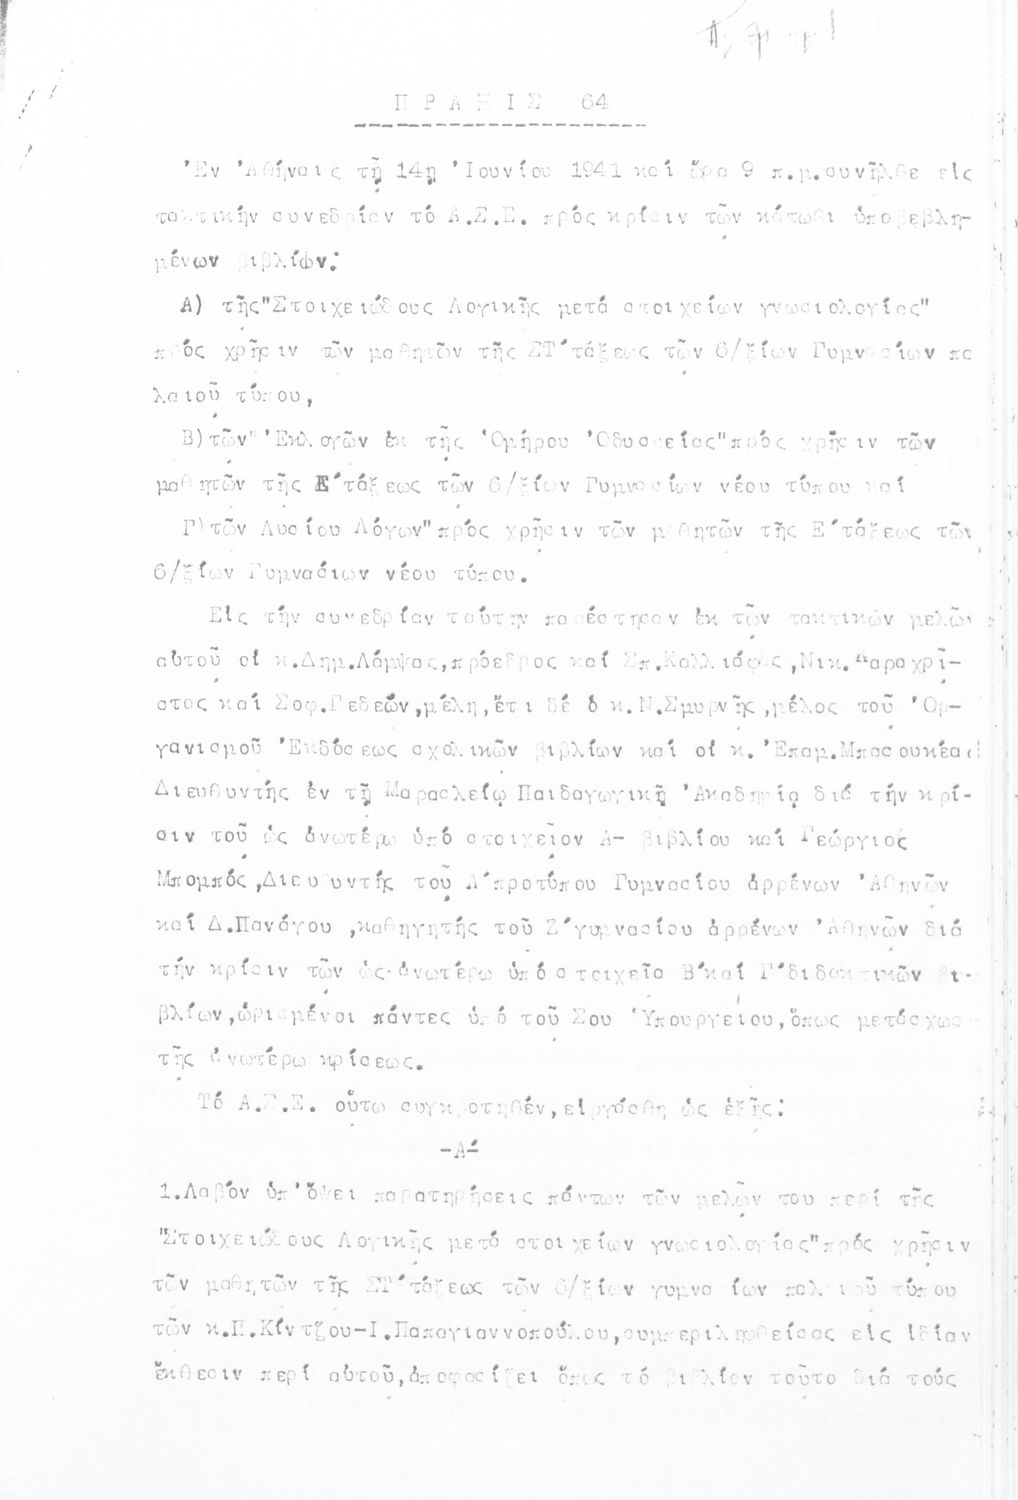 ΠΡΑΞΙΣ 64
Ἐν Ἀθήναις τῇ 14ῃ Ἰουνίου 1941 καί ὥρα 9 π.μ.συνῆλθε εἰς
τακτικήν συνεδρίαν τό Α.Σ.Ε. πρός κρίσιν τῶν κάτωθι ὑποβεβλη-
μένων βιβλίων:
Α) τῆς"Στοιχειώδους Λογικῆς μετά στοιχείων γνωσιολογίας"
πρός χρῆσιν τῶν μαθητῶν τῆς ΣΤ΄τάξεως τῶν 6/ξίων Γυμνασίων πα
λαιοῦ τύπου,
Β)τῶν"Ἐκλογῶν ἐκ τῆς Ὁμήρου Ὀδυσσείας"πρός χρῆσιν τῶν
μαθητῶν τῆς Ε΄τάξεως τῶν 6/ξίων Γυμνασίων νέου τύπου καί
Γ)τῶν Λυσίου Λόγων"πρός χρῆσιν τῶν μαθητῶν τῆς Ε΄τάξεως τῶν
6/ξίων Γυμνασίων νέου τύπου.
Εἰς τήν συνεδρίαν ταύτην παρέστησαν ἐκ τῶν τακτικῶν μελῶν
αὐτοῦ οἱ κ.Δημ.Λάμψας,πρόεδρος καί Σπ.Καλλιάφας,Νικ.Καραχρῖ-
στος καί Σοφ.Γεδεών,μέλη,ἔτι δέ ὁ κ.Ν.Σμυρνῆς,μέλος τοῦ Ὀρ-
γανισμοῦ Ἐκδόσεως σχολικῶν βιβλίων καί οἱ κ.Ἐπαμ.Μπασουκέας
Διευθυντής ἐν τῇ Μαρασλείῳ Παιδαγωγικῇ Ἀκαδημίᾳ διά τήν κρί-
σιν τοῦ ὡς ἀνωτέρω ὑπό στοιχεῖον Α- βιβλίου καί Γεώργιος
Μπομπός,Διευθυντής τοῦ Α΄προτύπου Γυμνασίου ἀρρένων Ἀθηνῶν
καί Δ.Πανάγου,καθηγητής τοῦ Ζ΄γυμνασίου ἀρρένων Ἀθηνῶν διά
τήν κρίσιν τῶν ὡς ἀνωτέρω ὑπό στοιχεῖα Β΄καί Γ΄διδακτικῶν βι-
βλίων,ὡρισμένοι πάντες ὑπό τοῦ Σου Ὑπουργείου,ὅπως μετάσχωσι
τῆς ἀνωτέρω κρίσεως.
Τό Α.Σ.Ε. οὕτω συγκροτηθέν,εἰργάσθη ὡς ἑξῆς:
-Α-
1.Λαβόν ὑπ'ὄψει παρατηρήσεις πάντων τῶν μελῶν του περί τῆς
"Στοιχειώδους Λογικῆς μετά στοιχείων γνωσιολογίας"πρός χρῆσιν
τῶν μαθητῶν τῆς ΣΤ΄τάξεως τῶν 6/ξίων γυμνασίων παλαιοῦ τύπου
τῶν κ.Π.Κίντζου-Ι.Παπαγιαννοπούλου,συμπεριληφθείσας εἰς ἰδίαν
ἔκθεσιν περί αὐτοῦ,ἀποφασίζει ὅπως τό βιβλίον τοῦτο διά τούς